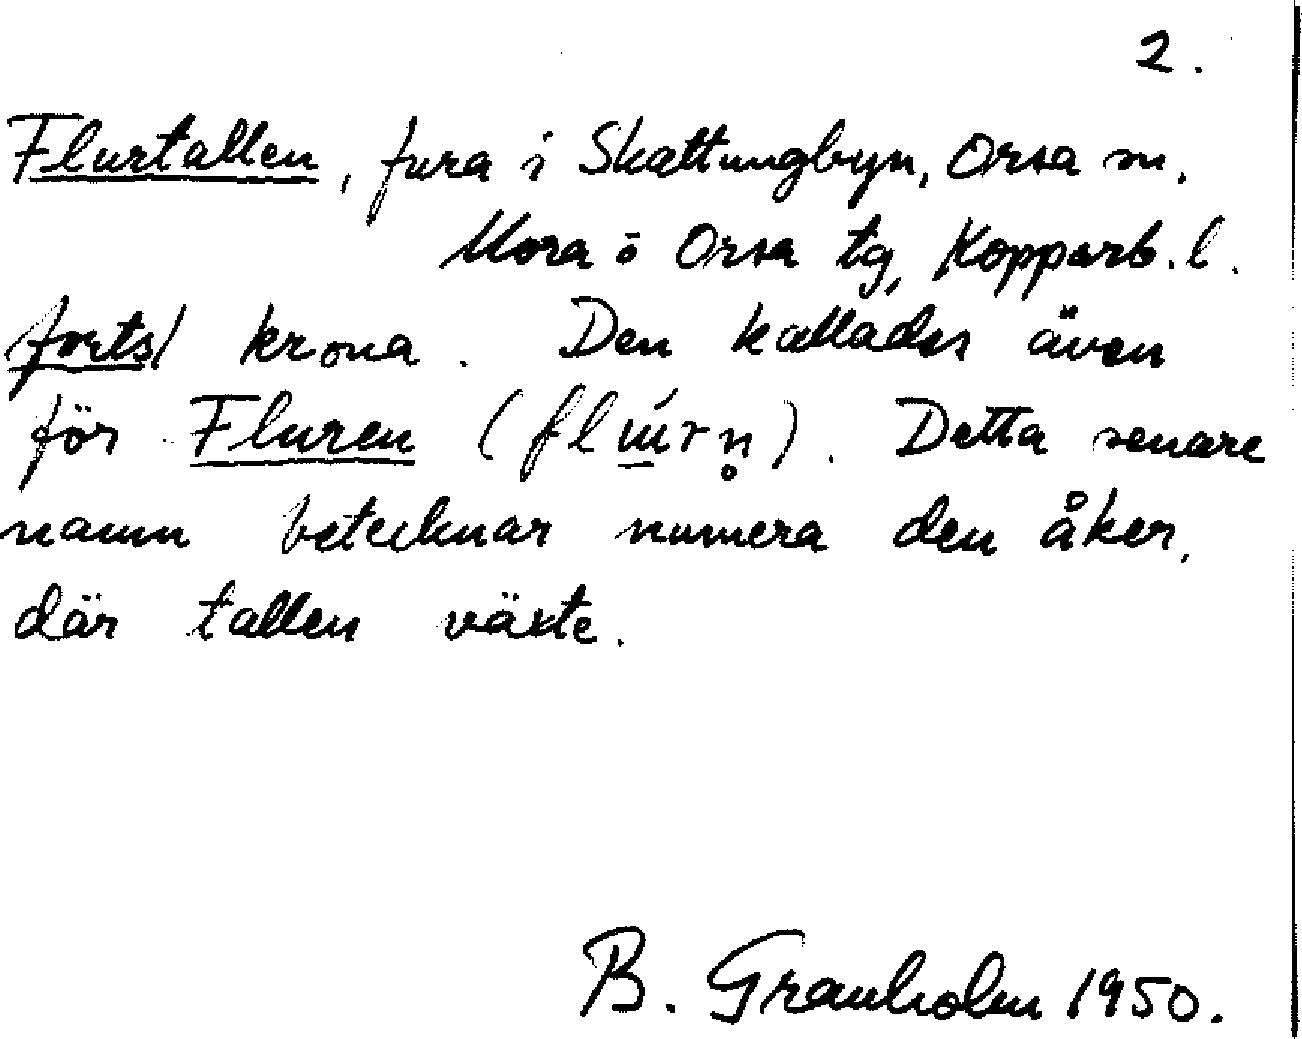 2.
Flurtallen, fura i Skattungbyn, Orsa sn.
Mora o Orsa tg, Kopparb. l.
forts/ krona. Den kallades även
för Fluren (flɯ́rn̥). Detta senare
namn betecknar numera den åker,
där tallen växte.
B. Granholm 1950.